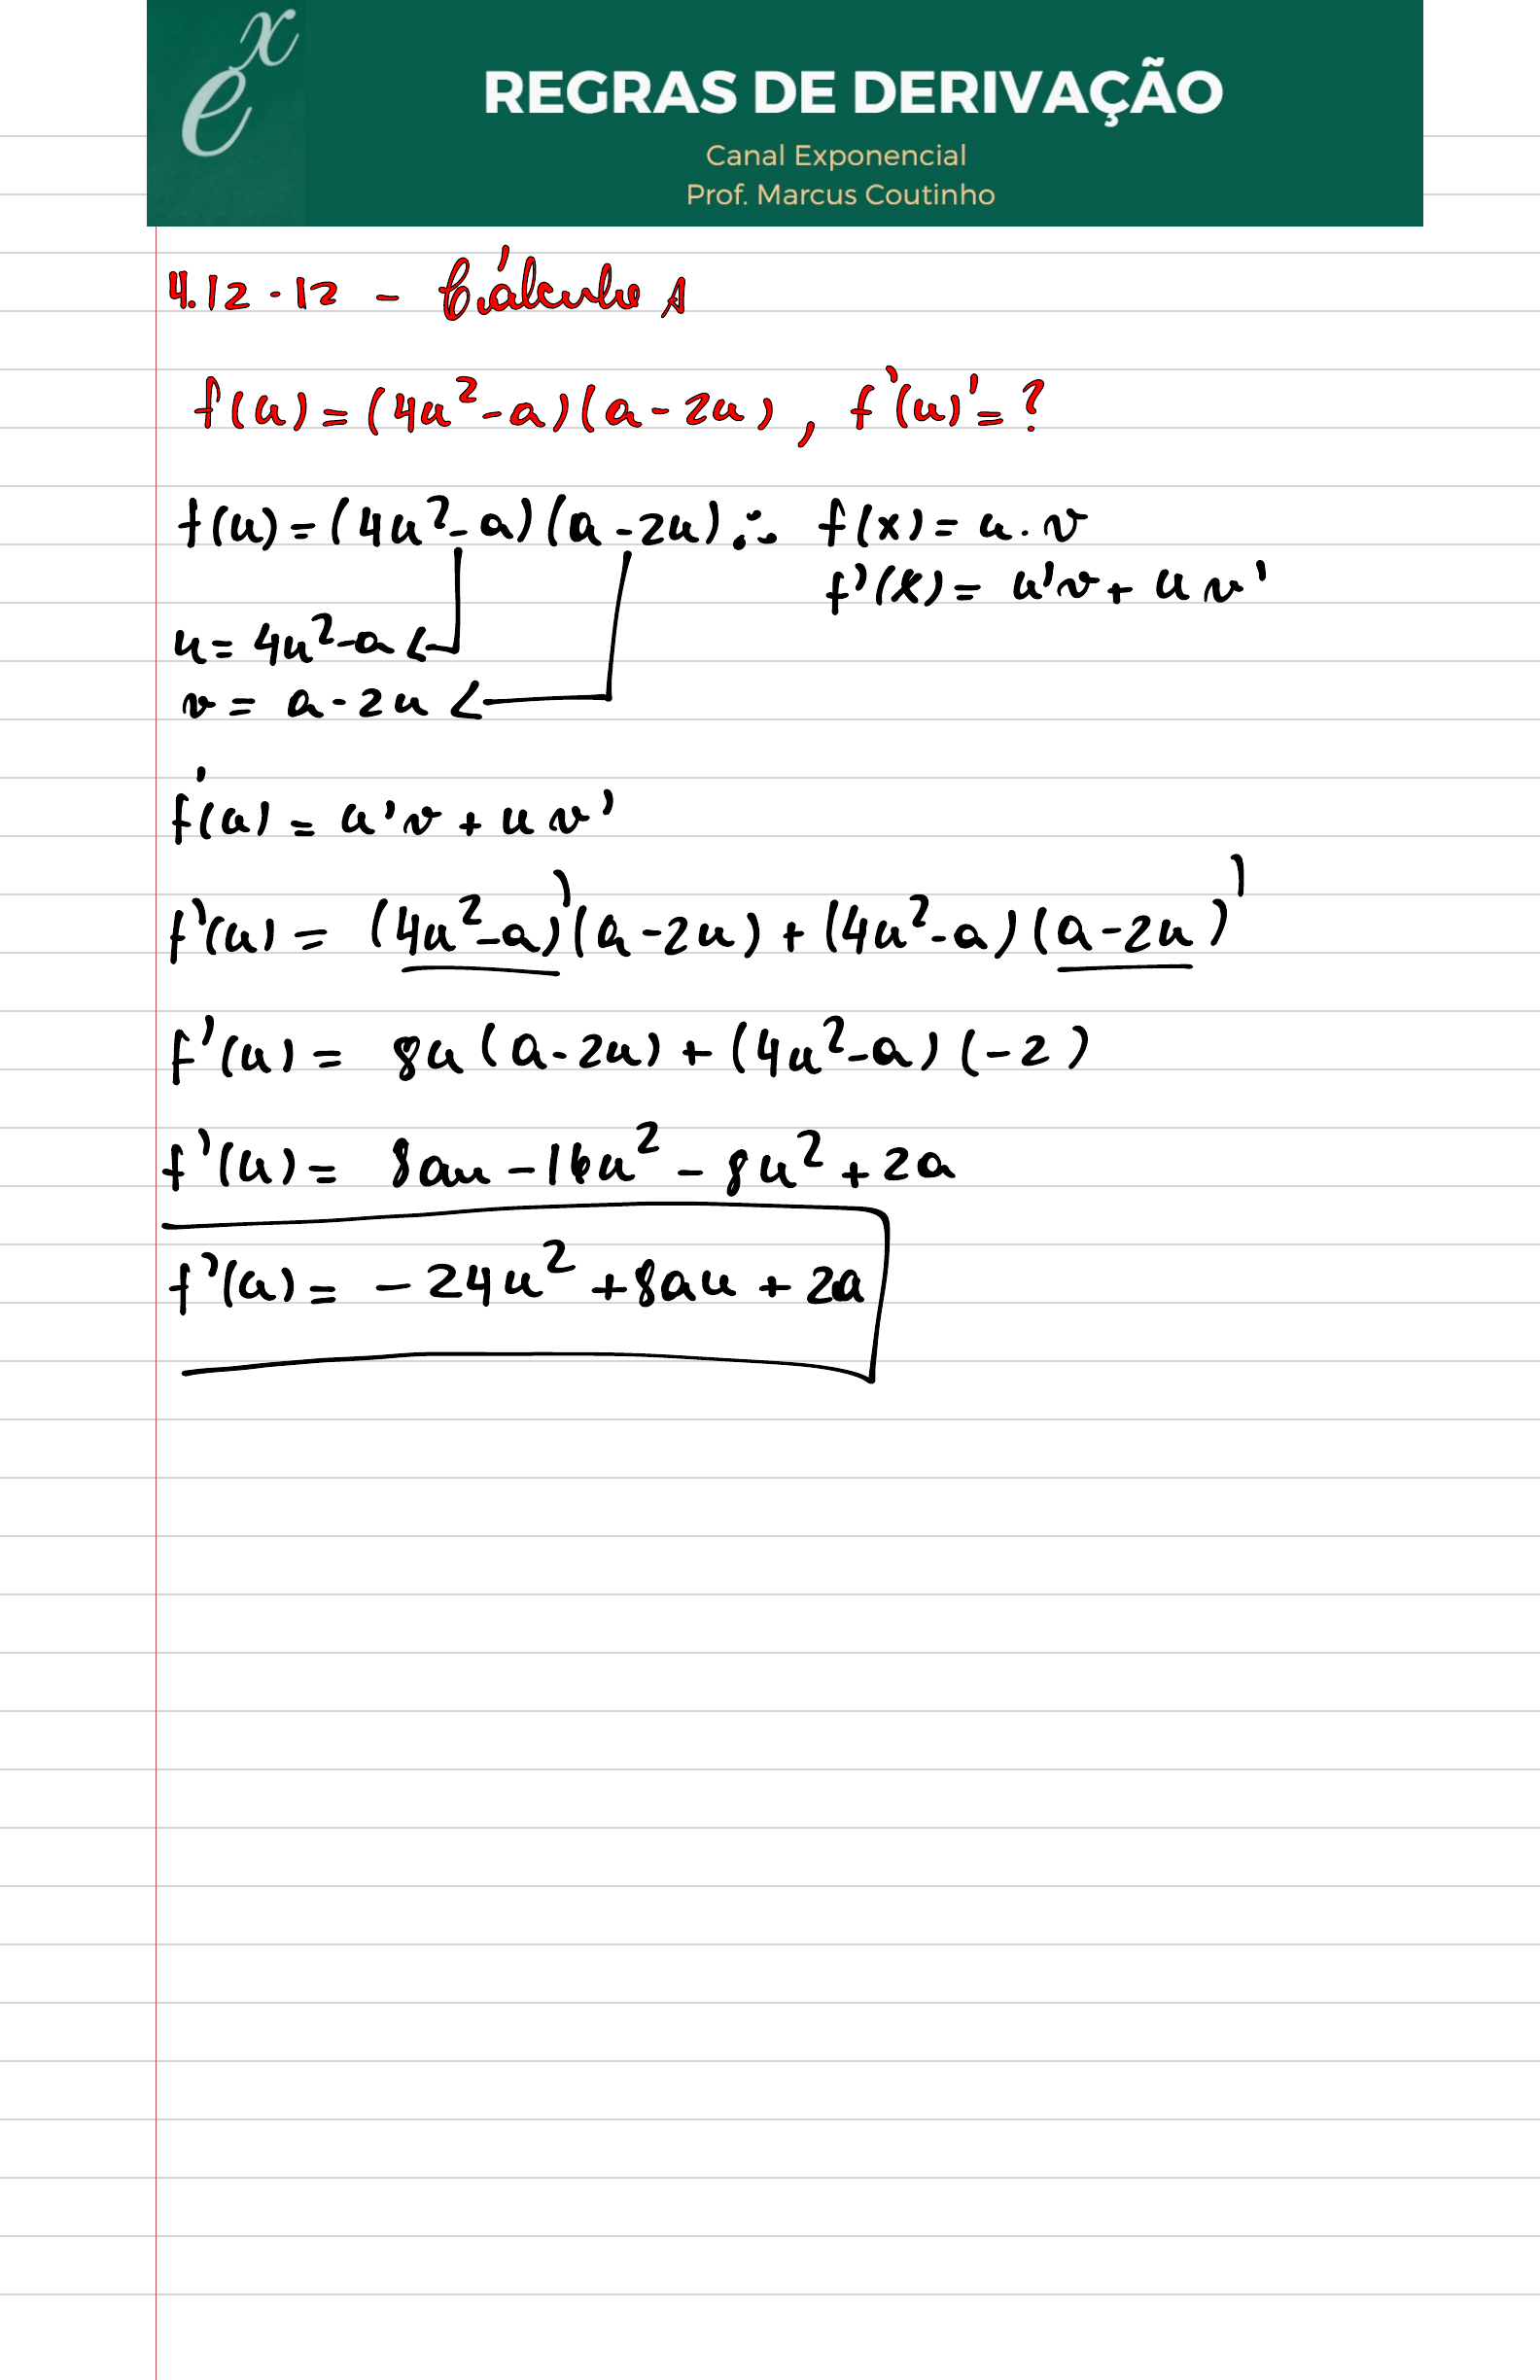 e^x
REGRAS DE DERIVAÇÃO
Canal Exponencial
Prof. Marcus Coutinho
4.12 - 12 - Cálculo A
f(u) = (4u² - a)(a - 2u), f'(u)' = ?
f(u) = (4u² - a)(a - 2u) ∴ f(x) = u . v
f'(x) = u'v + u v'
u = 4u² - a <
v = a - 2u <
f'(u) = u'v + u v'
f'(u) = (4u² - a)'(a - 2u) + (4u² - a)(a - 2u)'
f'(u) = 8u(a - 2u) + (4u² - a)(-2)
f'(u) = 8au - 16u² - 8u² + 2a
f'(u) = -24u² + 8au + 2a